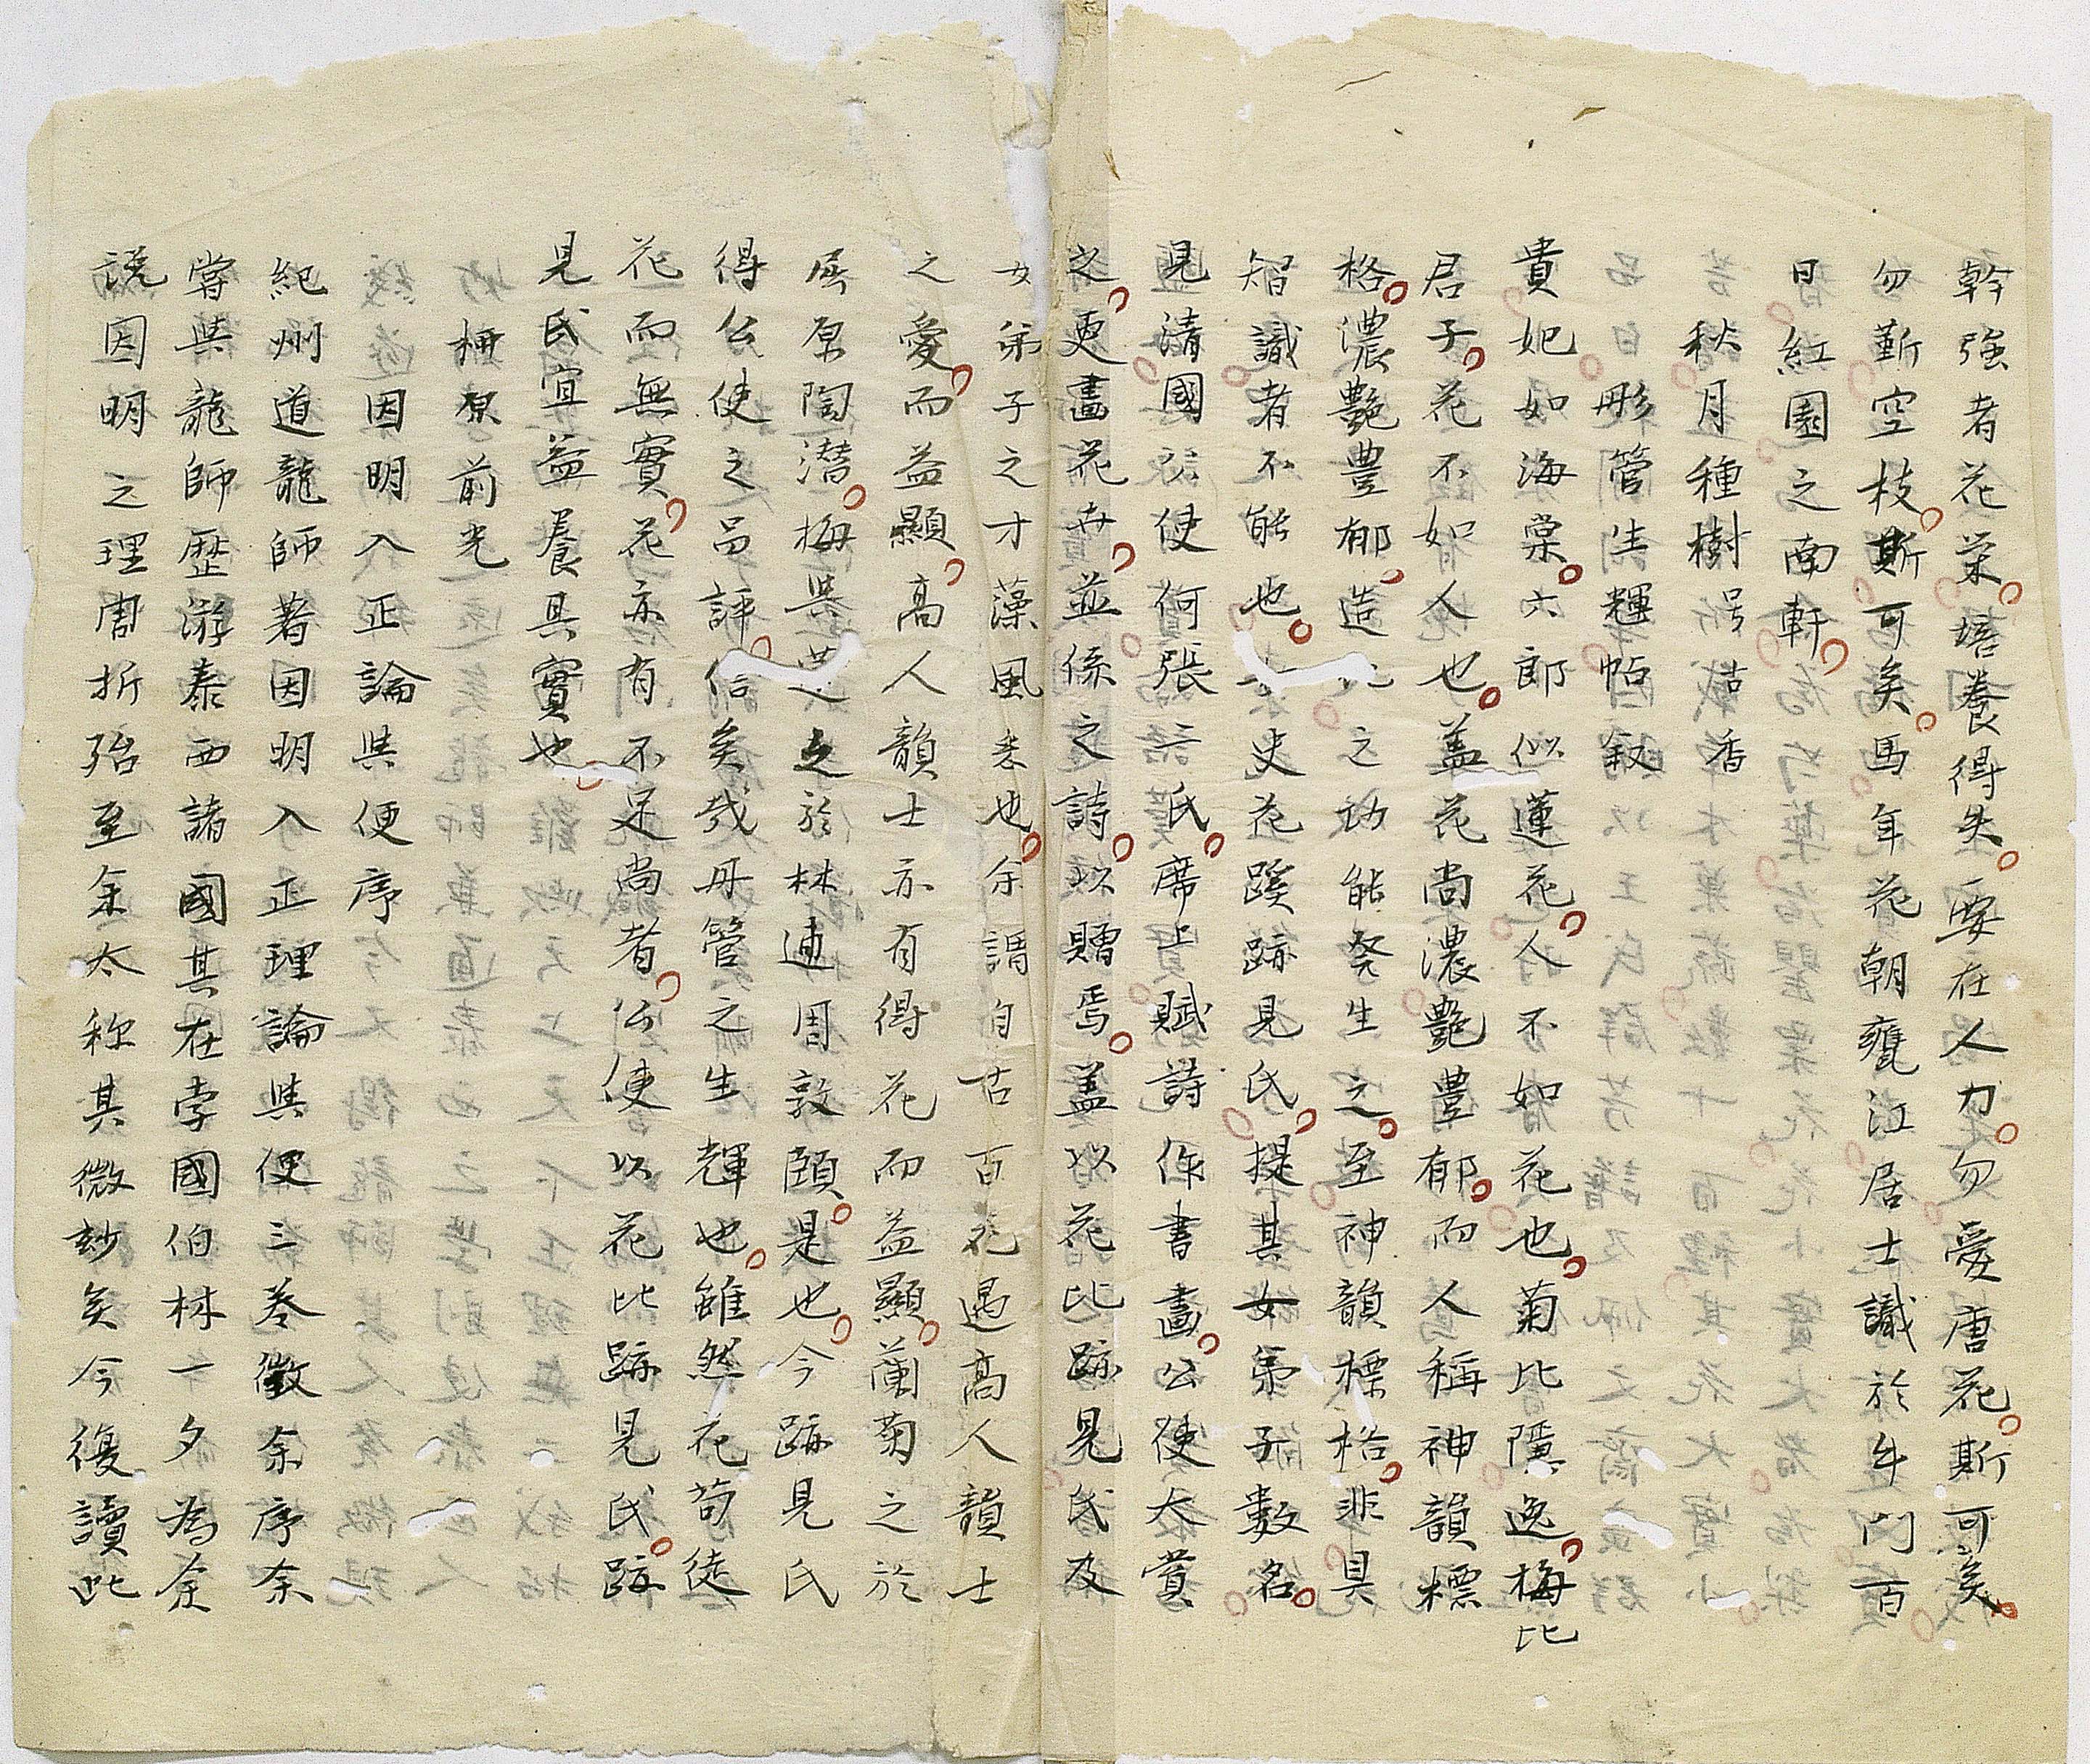 幹強者花榮。培養得失。要在人力。勿愛唐花。斯可矣。
勿斬空枝。斯可矣。馬年花朝甕江居士識於牛門百
日紅園之南軒。
秋月種樹号古香
彤管生輝帖叙
貴妃如海棠。六郎似蓮花。人不如花也。菊比隱逸。梅比
君子。花不如人也。盖花尚濃艷豊郁。而人稱神韻標
格。濃艷豊郁。造化之功能発生之。至神韻標格。非具
智識者不能也。女史花蹊跡見氏。提其女弟子數名。
見清國公使何張二氏。席上賦詩作書畫。公使大賞
之。更畫花卉。並係之詩。以贈焉。盖以花比跡見氏及
女弟子之才藻風采也。余謂自古百花遇高人韻士
之愛。而益顯。高人韻士亦有得花而益顯。蘭菊之於
屈原陶潜。梅與蓮之於林逋周敦頤。是也。今跡見氏
得公使之品評。信矣哉丹管之生輝也。雖然花苟徒
花而無實。花亦有不足尚者。公使以花比跡見氏。跡
見氏宜益養具實也。
栖原前光
因明入正論與便序
紀州道龍師著因明入正理論與便三卷徴余序余
嘗與龍師歴游泰西諸國其在孛國伯林一夕為余
説因明之理周折殆至余太称其微玅矣今復讀此